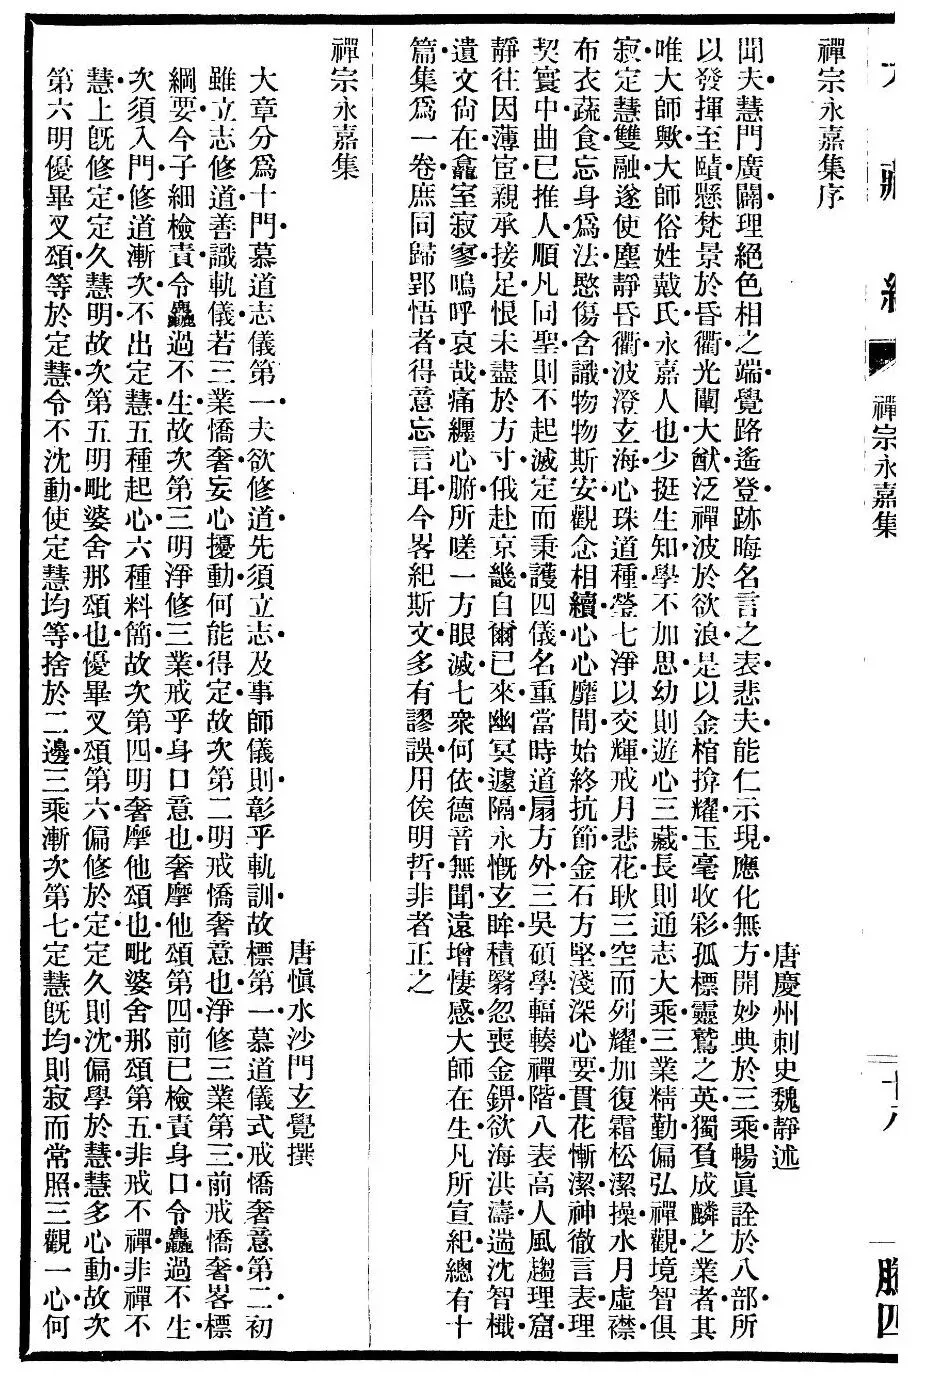 禪宗永嘉集
十八
騰四
禪宗永嘉集序
唐慶州刺史魏靜述
聞夫慧門廣闢理絕色相之端覺路遙登跡晦名言之表悲夫能仁示現應化無方開妙典於三乘暢眞詮於八部所
以發揮至賾懸梵景於昏衢光闡大猷泛禪波於欲浪是以金棺揜耀玉毫收彩孤標靈鷲之英獨負成麟之業者其
唯大師歟大師俗姓戴氏永嘉人也少挺生知學不加思幼則遊心三藏長則通志大乘三業精勤偏弘禪觀境智俱
寂定慧雙融遂使塵靜昏衢波澄玄海心珠道種瑩七淨以交輝戒月悲花耿三空而列耀加復霜松潔操水月虛襟
布衣蔬食忘身爲法愍傷含識物物斯安觀念相續心心靡間始終抗節金石方堅淺深心要貫花慚潔神徹言表理
契寰中曲已推人順凡同聖則不起滅定而秉護四儀名重當時道扇方外三吳碩學輻輳禪階八表高人風趨理窟
靜往因薄宦親承接足恨未盡於方寸俄赴京畿自爾已來幽冥遽隔永慨玄眸積翳忽喪金錍欲海洪濤遄沈智檝
遺文尙在龕室寂寥嗚呼哀哉痛纏心腑所嗟一方眼滅七衆何依德音無聞遠增悽感大師在生凡所宣紀總有十
篇集爲一卷庶同歸郢悟者得意忘言耳今畧紀斯文多有謬誤用俟明哲非者正之
禪宗永嘉集
唐愼水沙門玄覺撰
大章分爲十門慕道志儀第一夫欲修道先須立志及事師儀則彰乎軌訓故標第一慕道儀式戒憍奢意第二初
雖立志修道善識軌儀若三業憍奢妄心擾動何能得定故次第二明戒憍奢意也淨修三業第三前戒憍奢畧標
綱要今子細檢責令麤過不生故次第三明淨修三業戒乎身口意也奢摩他頌第四前已檢責身口令麤過不生
次須入門修道漸次不出定慧五種起心六種料簡故次第四明奢摩他頌也毗婆舍那頌第五非戒不禪非禪不
慧上旣修定定久慧明故次第五明毗婆舍那頌也優畢叉頌第六偏修於定定久則沈偏學於慧慧多心動故次
第六明優畢叉頌等於定慧令不沈動使定慧均等捨於二邊三乘漸次第七定慧旣均則寂而常照三觀一心何